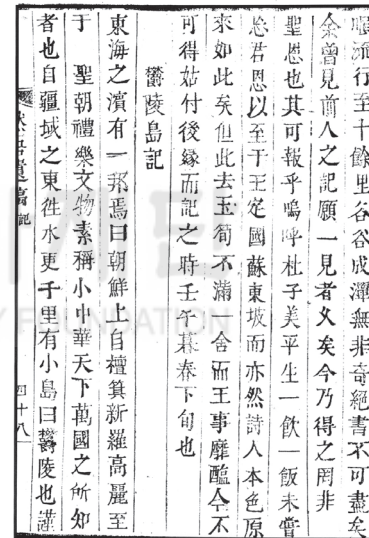 順流行至十餘里谷谷成潭無非奇絕書不可盡矣
余曾見前人之記願一見者久矣今乃得之罔非
聖恩也其可報乎嗚呼杜子美平生一飮一飯未嘗
忘君恩以至于王定國蘇東坡而亦然詩人本色原
來如此矣但此去玉筍不滿一舍而王事靡盬今不
可得姑付後緣而記之時壬午暮春下旬也
欝陵島記
東海之濱有一邦焉曰朝鮮上自檀箕新羅高麗至
于 聖朝禮樂文物素稱小中華天下萬國之所知
者也自疆域之東徃水更千里有小島曰欝陵也謹
遺稿 記
四十八